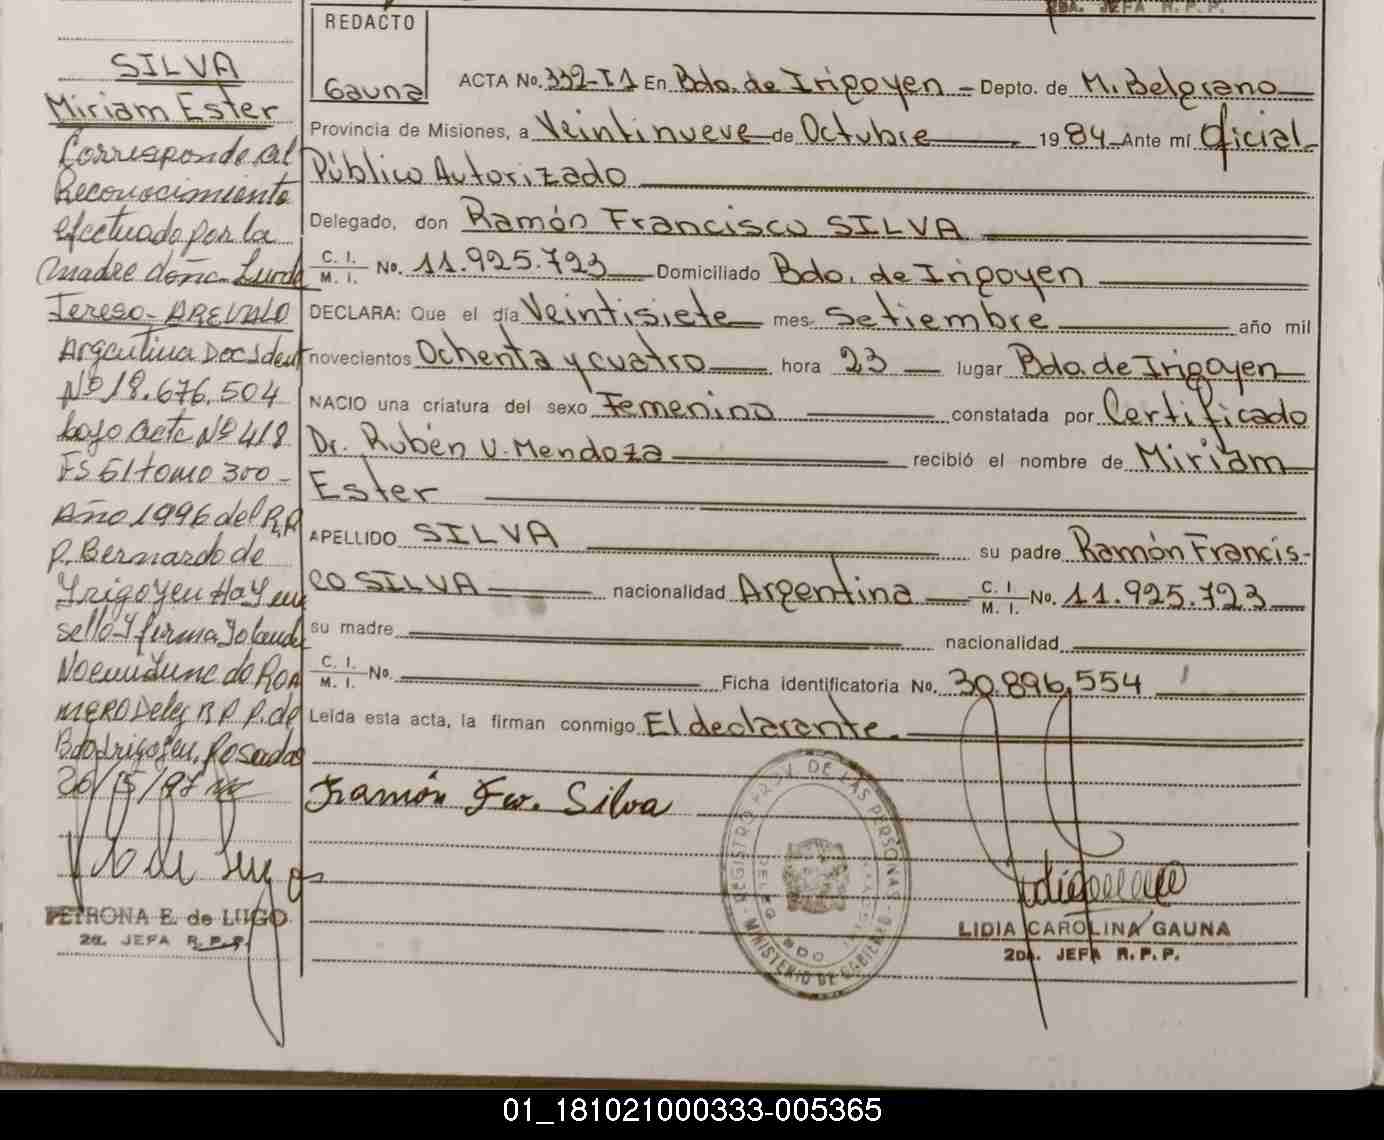 2DA. JEFA R. P. P.
REDACTO
Gauna
SILVA
Miriam Ester
Corresponde al
Reconocimiento
efectuado por la
madre doña
Teresa AREVALO
Argentina Doc Ident
Nº 18.676.504
bajo acta Nº 418
FS 61 tomo 300 -
Año 1996 del R.P.
P. Bernardo de
Yrigoyen Hay un
sello y firma
MERO Deleg R P P. de
Bdo de Irigoyen, Posadas
PETRONA E. de LUGO
2a. JEFA R. P. P.
ACTA No. 332-T1 En Bdo. de Irigoyen - Depto. de M. Belgrano
Provincia de Misiones, a Veintinueve de Octubre 1984 Ante mí Oficial
Público Autorizado
Delegado, don Ramón Francisco SILVA
C. I. M. I. No. 11.925.723 Domiciliado Bdo. de Irigoyen
DECLARA: Que el día Veintisiete mes Setiembre año mil
novecientos Ochenta y cuatro hora 23 lugar Bdo. de Irigoyen
NACIO una criatura del sexo Femenino constatada por Certificado
Dr. Rubén V. Mendoza recibió el nombre de Miriam
Ester
APELLIDO SILVA su padre Ramón Francis-
co SILVA nacionalidad Argentina C. I. M. I. No. 11.925.723
su madre nacionalidad
C. I. M. I. No. Ficha identificatoria No. 30.896.554
Leída esta acta, la firman conmigo El declarante.
Ramón Fco. Silva
REGISTRO PROV. DE LAS PERSONAS
MINISTERIO DE GOBIERNO
LIDIA CAROLINA GAUNA
2DA. JEFA R. P. P.
01_181021000333-005365